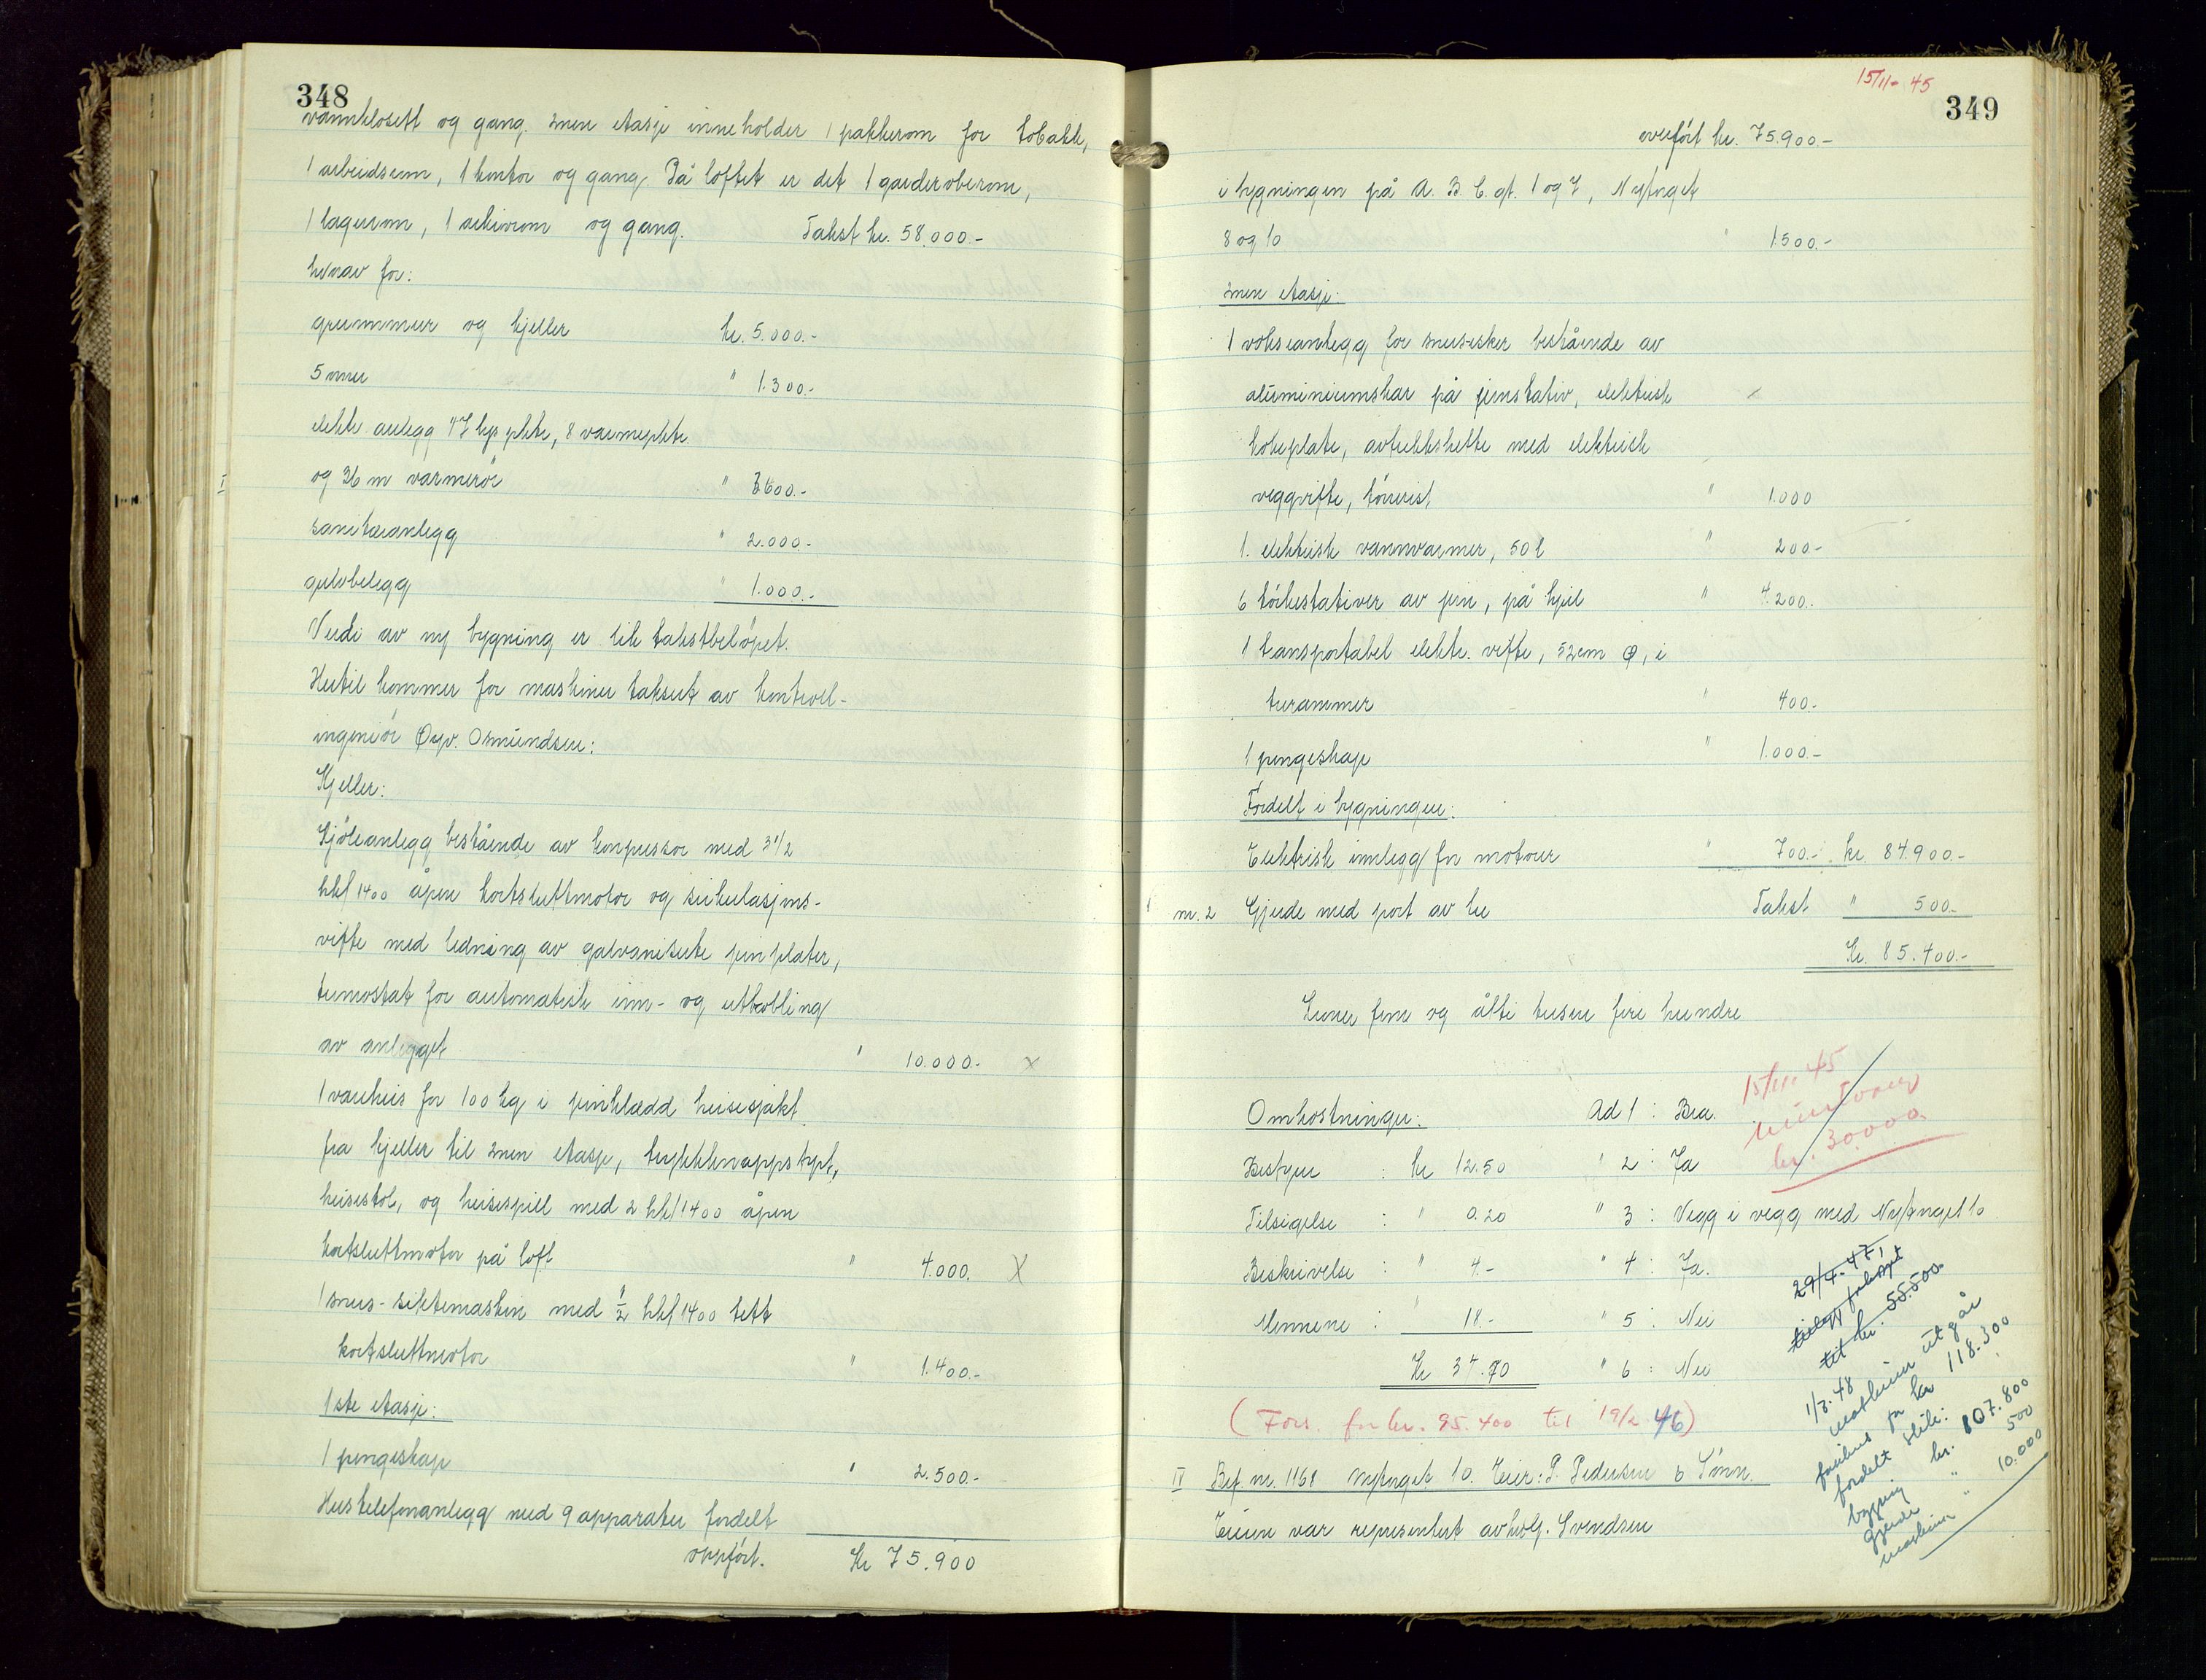 348
vannklosett og gang. 2nen etasje inneholder 1 pakkerom for tobakk,
1 arbeidsrom, 1 kontor og gang. På loftet er det 1 garderoberom,
1 lagerrom, 1 arkivrom og gang. Takst kr. 58.000.-
hvorav for:
grunnmur og kjeller kr. 5.000.-
5 " 1.300.-
elektr. anlegg 47 lys pkte, 8 varmepkte
og 36 m varmerör " 3600.-
sanitæranlegg " 2.000.-
gulvbelegg " 1.000.-
Verdi av ny bygning er lik takstbelöpet.
Hertil kommer for maskiner taksert av kontroll-
ingeniör Öyv. Osmundsen:
Kjeller:
Kjöleanlegg bestående av kompressor med 3 1/2
hk/1400 åpen kortsluttmotor og sirkulasjons-
vifte med ledning av galvaniserte jernplater,
termostat for automatisk inn- og utkobling
av anlegget " 10.000.- x
1 vareheis for 100 kg i jernkledd heisesjakt
fra kjeller til 2nen etasje, trykknappstyrt,
heisestol, og heisespill med 2 hk/1400 åpen
kortsluttmotor på loft " 4.000. X
1 snus-siktemaskin med 1/2 hk/1400 tett
kortsluttmotor " 1.400.-
1ste etasje:
1 pengeskap " 2.500.-
Hustelefonanlegg med 9 apparater fordelt
overfört. Kr 75.900
15/11-45
349
overfört kr. 75.900.-
i bygningen på A. B. C. gt. 1 og 7, Nytorget
8 og 10 " 1.500.-
2nen etasje:
1 vokseanlegg for snusesker bestående av
aluminiumskar på jernstativ, elektrisk
kokeplate, avtrekkshette med elektrisk
veggvifte, törrerist " 1.000
1 elektrisk vannvarmer, 50 l " 200.-
6 törkestativer av jern, på hjul " 4.200.-
1 transportabel elektr. vifte, 52 cm Ø, i
treramme " 400.-
1 pengeskap " 1.000.-
Fordelt i bygningen:
Elektrisk innlegg for motorer " 700.- kr. 84.900.-
nr. 2 Gjerde med port av tre Takst " 500.-
Kr. 85.400.-
Kroner fem og åtti tusen fire hundre
Omkostninger: Ad 1 : Bra.
15/11. 45
kr. 30.000.
Bestyrer : kr 12.50 " 2 : Ja
Tilsigelse : " 0.20 " 3 : Vegg i vegg med Nytorget 10
Beskrivelse : " 4.- " 4 : Ja.
Mennene : " 18.- " 5 : Nei
Kr 34.70 " 6 : Nei
(Fors. for kr. 95.400 til 19/2 46)
29/4. 47,
tillegg forhöyet
til kr. 55.500.
1/3. 48
maskiner utgår
forhöies for kr 118.300
fordelt slik:
bygning kr. 107.800
gjerde " 500
maskiner " 10.000
IV Bef. nr. 1168 Nytorget 10. Eier: P. Pedersen & Sönn.
Eieren var representert av Svendsen